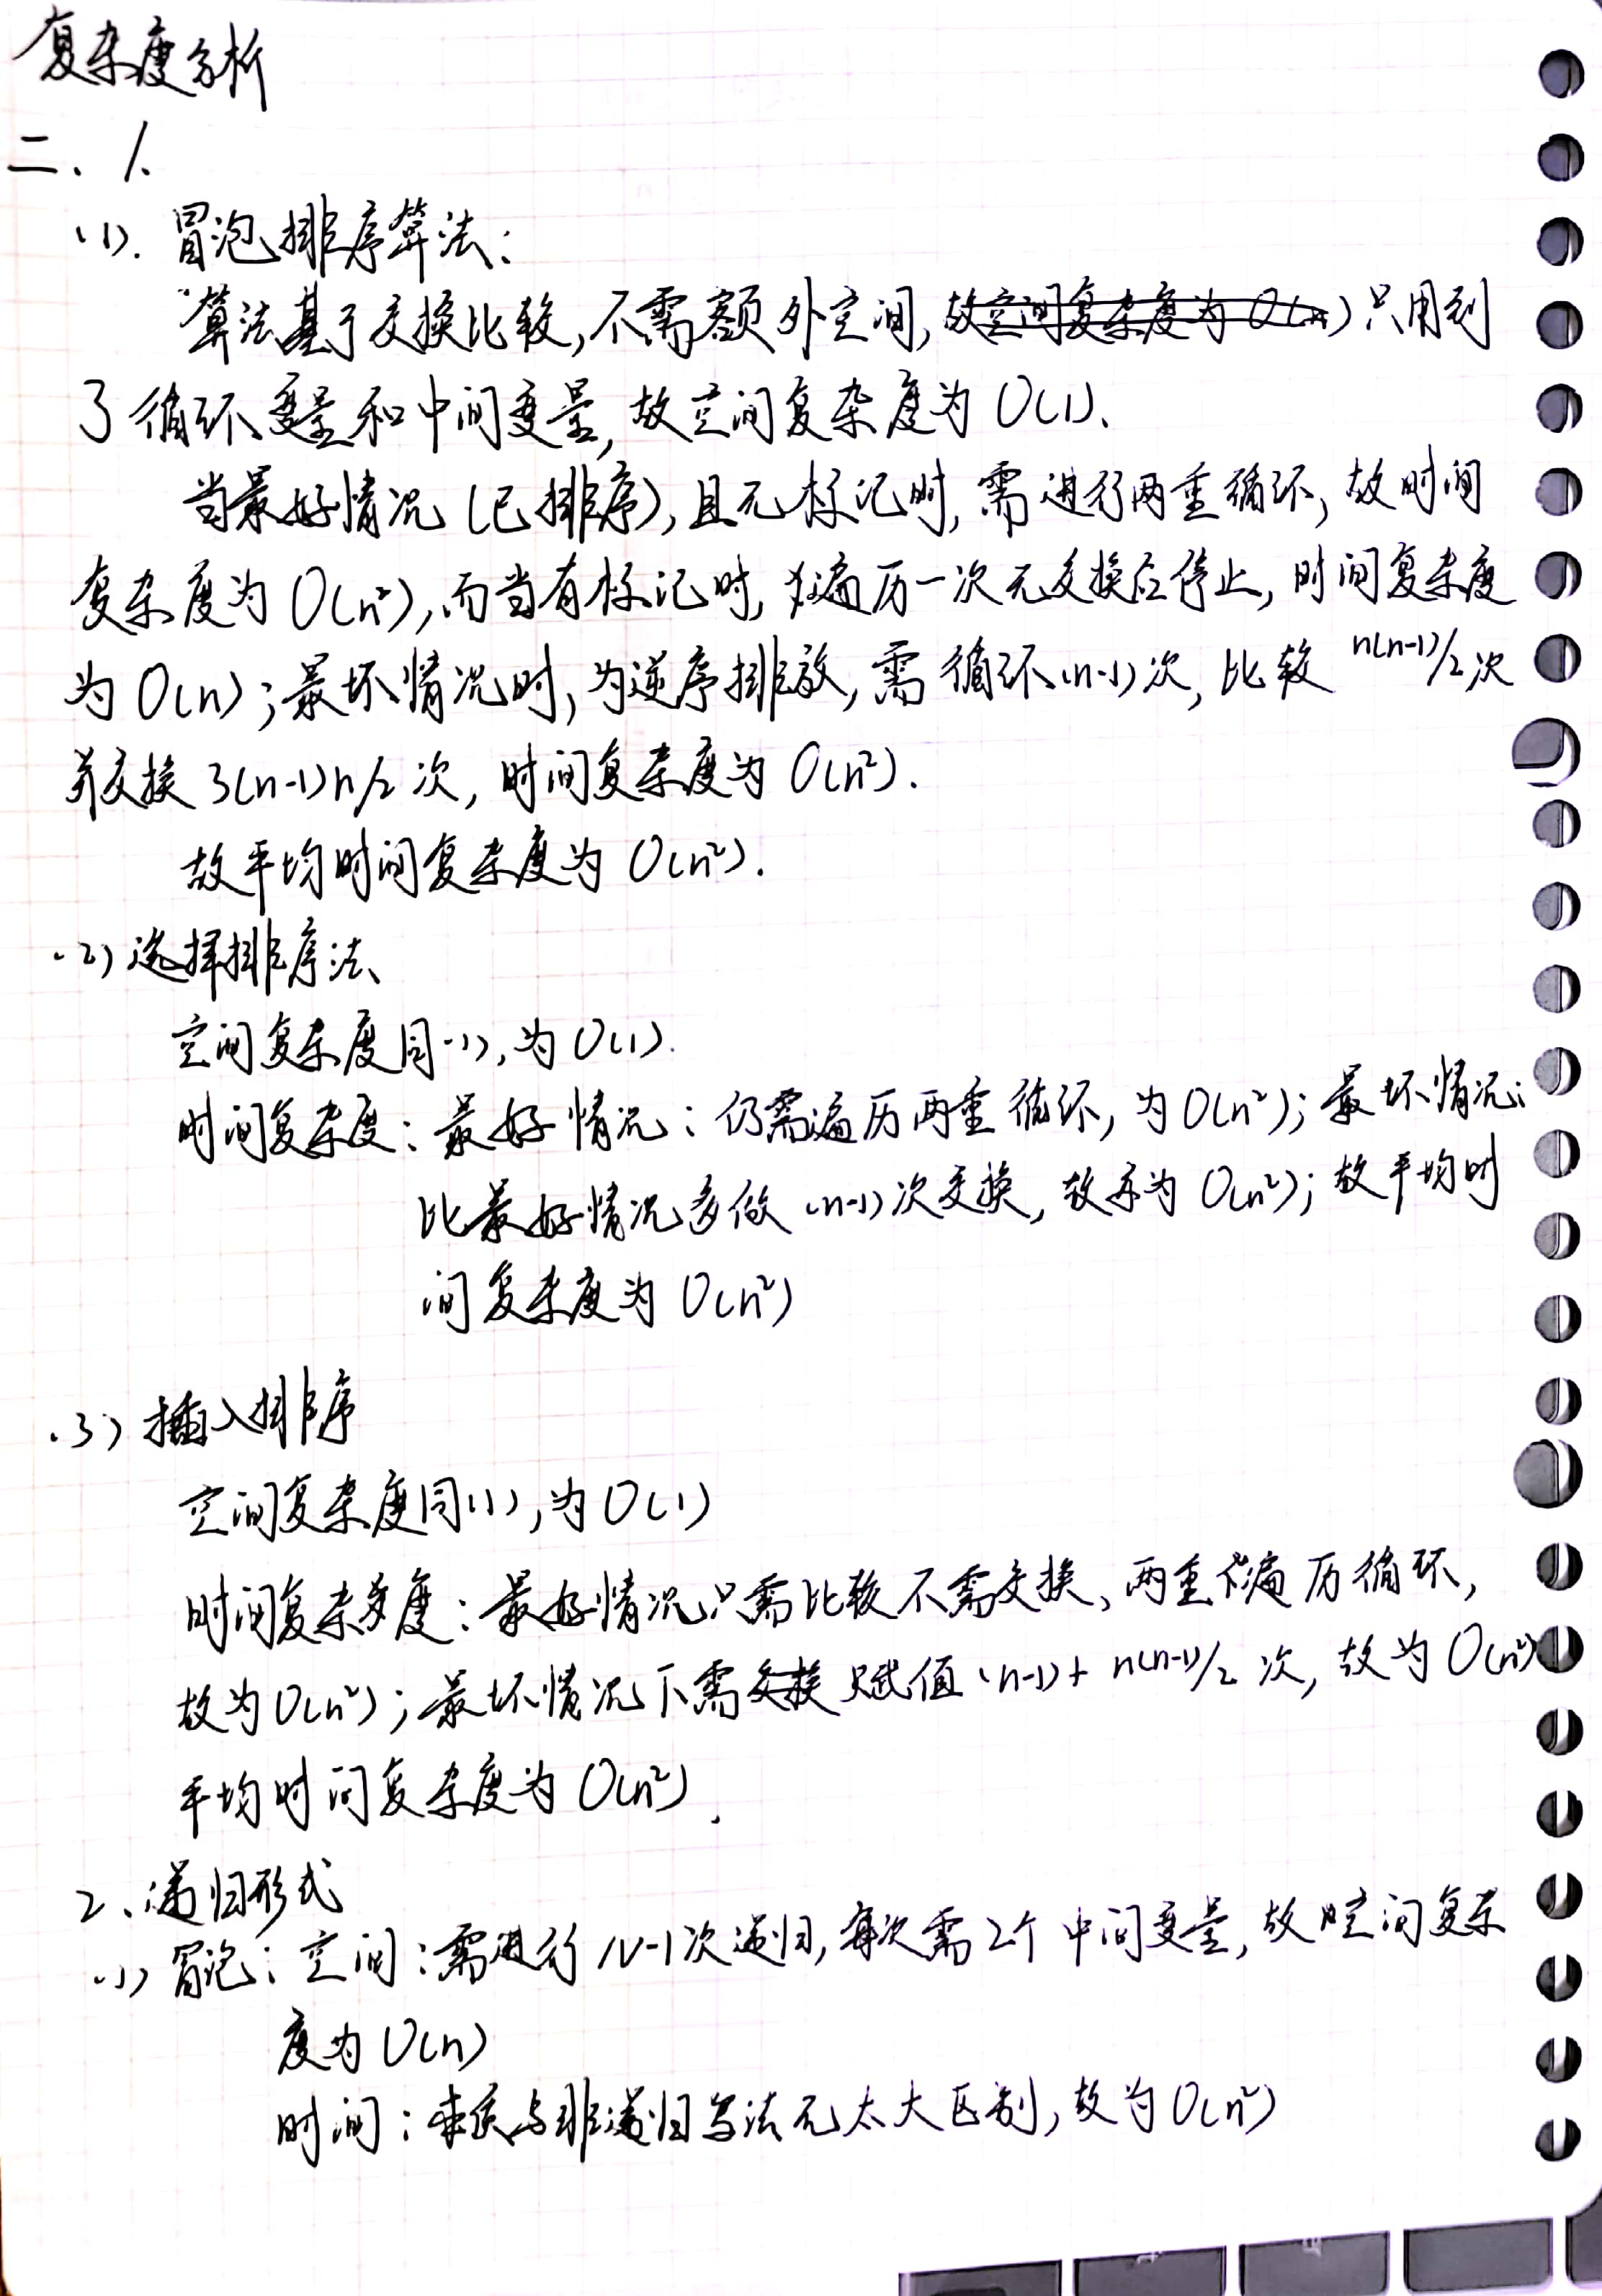 复杂度分析
二、1.
(1). 冒泡排序算法:
算法基于交换比较,不需额外空间,故空间复杂度为O(n)只用到
了循环变量和中间变量,故空间复杂度为O(1).
当最好情况(已排序),且无标记时,需进行两重循环,故时间
复杂度为O(n²),而当有标记时,遍历一次无交换后停止,时间复杂度
为O(n);最坏情况时,为逆序排放,需循环(n-1)次,比较n(n-1)/2次
并交换3(n-1)n/2次,时间复杂度为O(n²).
故平均时间复杂度为O(n²).
(2)选择排序法
空间复杂度同(1),为O(1).
时间复杂度:最好情况:仍需遍历两重循环,为O(n²);最坏情况:
比最好情况多做(n-1)次交换,故亦为O(n²);故平均时
间复杂度为O(n²)
(3)插入排序
空间复杂度同(1),为O(1)
时间复杂度:最好情况只需比较不需交换、两重遍历循环,
故为O(n²);最坏情况下需交换赋值(n-1)+n(n-1)/2次,故为O(n²)
平均时间复杂度为O(n²).
2、递归形式
(1)冒泡:空间:需进行N-1次递归,每次需2个中间变量,故空间复杂
度为O(n)
时间:与非递归写法无太大区别,故为O(n²)